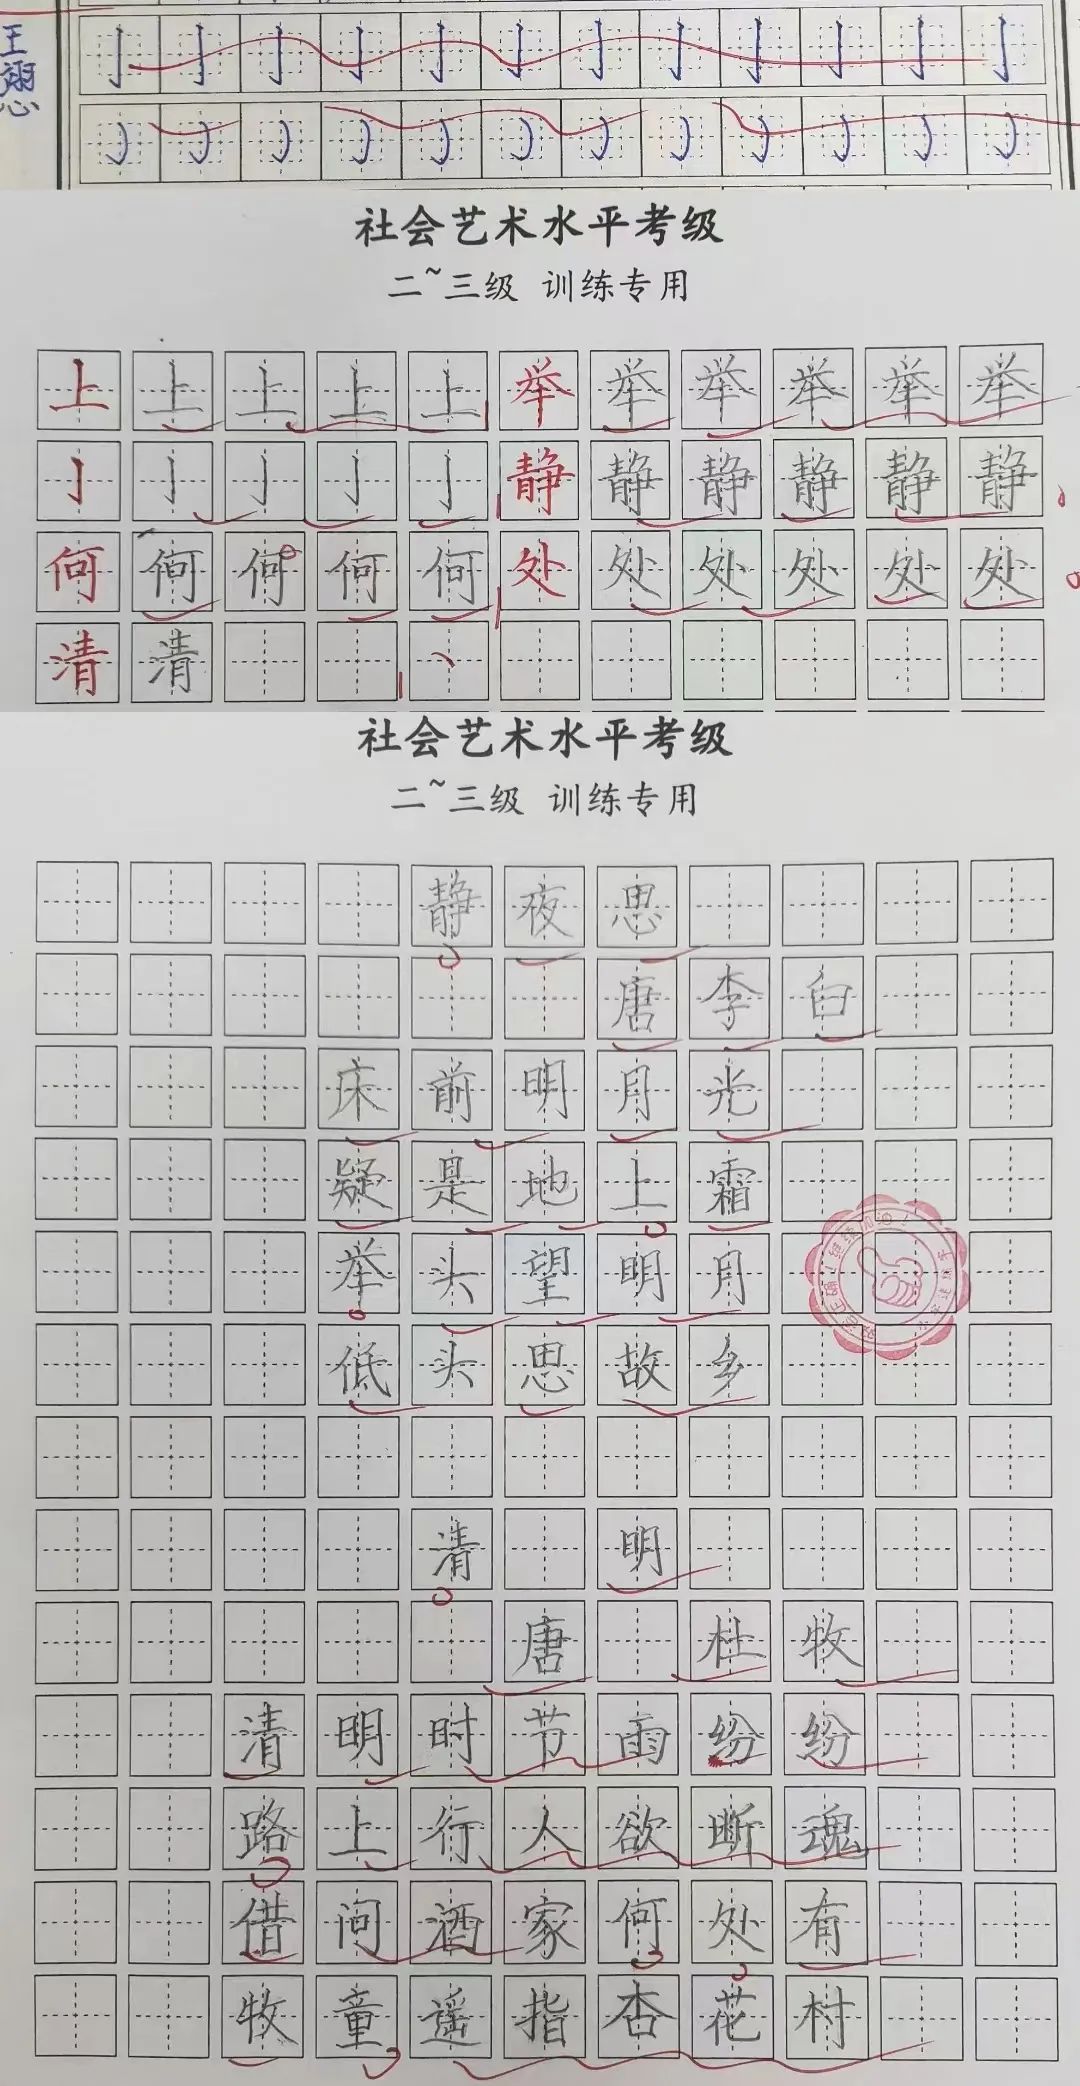 王翊心
亅亅亅亅亅亅亅亅亅亅亅亅
社会艺术水平考级
二~三级 训练专用
上上上上上举举举举举举
亅亅亅亅亅静静静静静静
何何何何何处处处处处处
清清
社会艺术水平考级
二~三级 训练专用
静夜思
唐李白
床前明月光
疑是地上霜
举头望明月
低头思故乡
清 明
唐 杜牧
清明时节雨纷纷
路上行人欲断魂
借问酒家何处有
牧童遥指杏花村